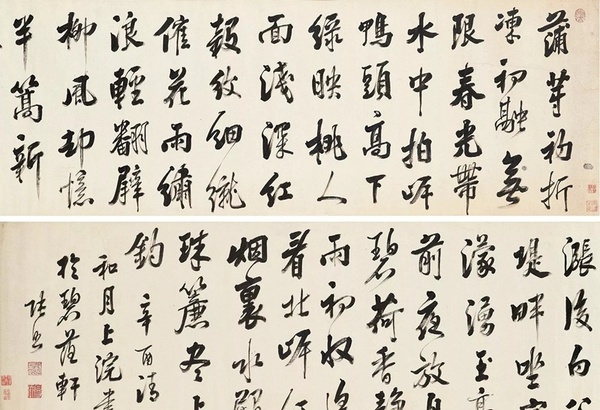 蒲芽初折
凍初融無
限春光帶
水中拍岸
鴨頭高下
綠映桃人
面淺深紅
縠紋細織
催花雨繡
浪輕翻擘
柳風却憶
半篙新
漲後白公
堤畔坐空
濛湧至
前夜放
碧荷香静
雨初收
看北岸
烟裏水
珠簾盡上
鈎 辛酉清
和月上浣書
於碧蔭軒